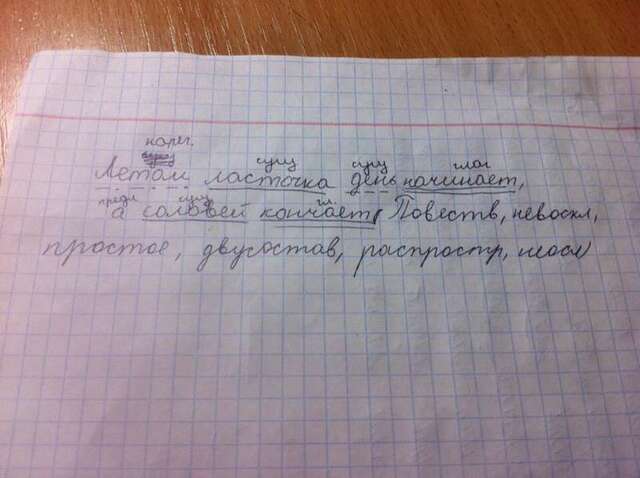 нареч.
сущ сущ глаг
Летом ласточка день начинает,
предл сущ гл.
а соловей кончает. Повеств, невоскл,
простое, двусостав, распростр, неосл